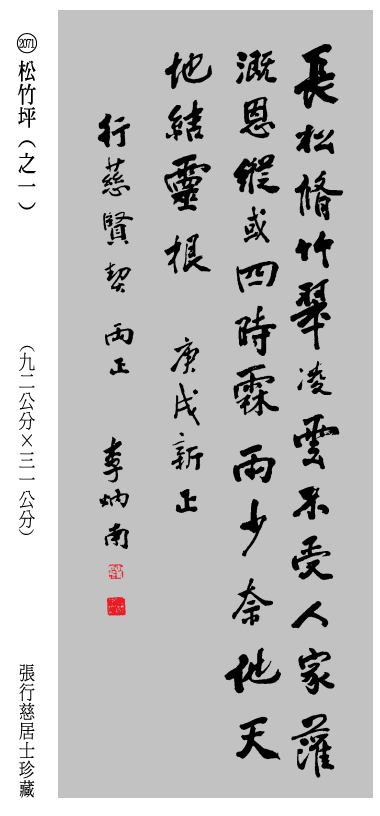 長松脩竹翠凌雲不受人家灌
溉恩縱或四時霖雨少奈他天
地結靈根 庚戌新正
行慈賢契 兩正 李炳南
2071 松竹坪（之一） （九二公分×三一公分） 張行慈居士珍藏